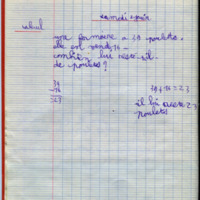 samedi
calcul
une fermière a 39 poulets.
elle en vend 16
combien lui reste-t-il
de poulets ?
39
-16
23
39+16=23
il lui reste 23
poulets